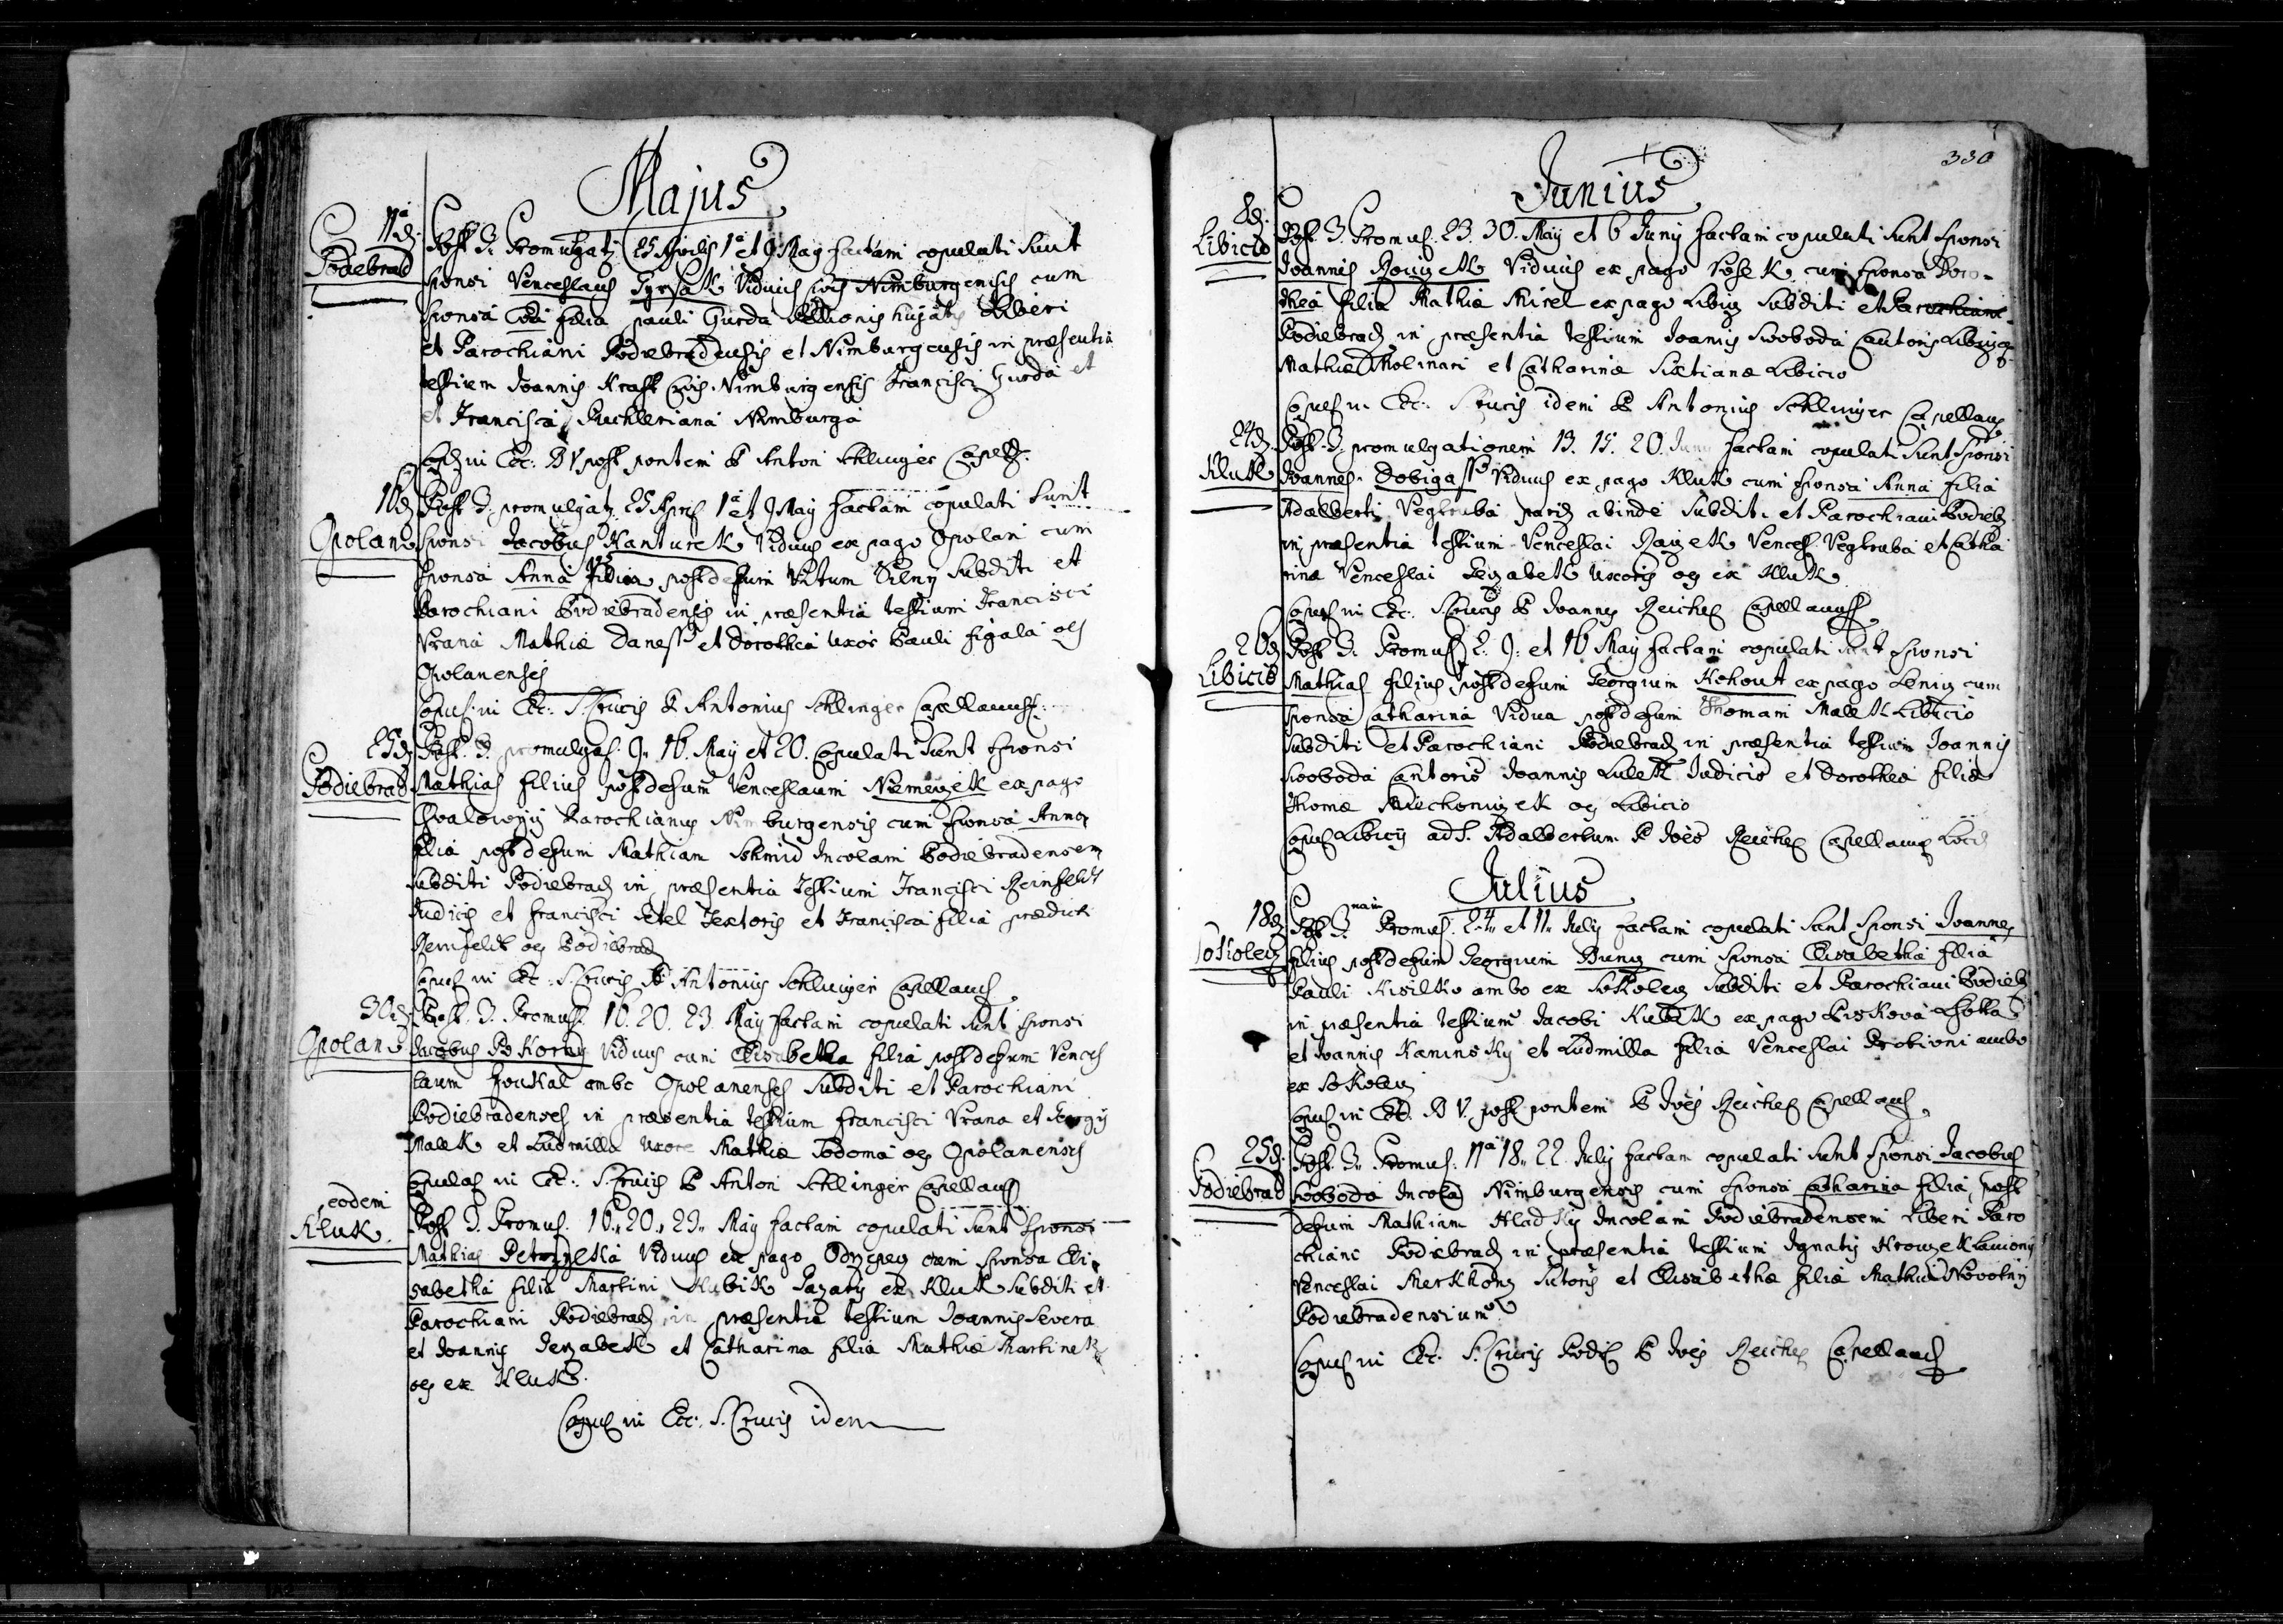 Majus
11ª
Podiebrad
Post 3. Promulgat. 25 Aprilis 1ª et 9 May factam copulati sunt
sponsi Venceslaus Tyrsak Viduus Nimburgensis cum
sponsa filia Pauli Gurda hujatis Liberi
et Parochiani Podiebradensis et Nimburgensis in præsentia
testium Joannis Krast Nimburgensis Francisci Gurda et
et Francisca Puchleriana Nimburga
in Ecc: B V post pontem P Anton Schlinger Capell.
16
Opolan
Post 3. promulgat. 25 April 1ª et 9 May factam copulati sunt
sponsi Jacobus Kanturek Viduus ex pago Opolan cum
sponsa Anna filia post defum Vitum Tilny subditi et
Parochiani Podiebradensis in præsentia testium Francisci
Vrana Mathiæ Daness et Dorothea uxor Pauli figala oes
Opolanenses
Copul: in Ecc: S. Crucis P Antonius Schlinger Capellanus
25
Podiebrad
Post. 3. promulgat. 9. 16. May et 20. Copulati sunt sponsi
Mathias filius post defum Venceslaum Niemeczek ex pago
Parochianus Nimburgensis cum sponsa Anna
filia post defum Mathiam Schmid Incolam Podiebradensem
subditi Podiebrad in præsentia testium Francisci Reinfeldt
Judicis et Francisci Setel Textoris et Francisca filia prædicti
Reinfeldt oes Podiebrad
Copul in Ecc: S. Crucis P: Antonius Schlinger Capellanus
30
Opolan
Post. 3. Promul. 16. 20. 23. May factam copulati sunt sponsi
Jacobus Pokorny Viduus cum Elisabetha filia post defum Vences
laum foukal ambo Opolanenses subditi et Parochiani
Podiebradenses in præsentia testium francisci Vrana et Georgy
Malek et Ludmilla uxore Mathiæ Sodoma oes Opolanenses
Copulat in Ecc: S. Crucis P Anton Schlinger Capellanus
eodem
Kluk.
Post 3. Promul. 16. 20. 23. May factam copulati sunt sponsi
Mathias Petrzelka Viduus ex pago Odrzepes cum sponsa Eli
sabetha filia Martini Kubik ex Kluk subditi et
Parochiani Podiebrad, in præsentia testium Joannis Severa
et Joannis Jerzabek et Catharina filia Mathiæ Martinek
oes ex Kluk.
Copul in Ecc. S. Crucis idem
330
Junius
8
Libicio
Post. 3. Promul. 23. 30. May et 6 Juny factam copulati sunt sponsi
Joannis Viduus ex pago cum sponsa Doro-
thea filia Mathiæ Mirel ex pago Libicz subditi et Parochiani
Podiebrad in præsentia testium Joannis Swoboda Cantoris
Mathiæ Molinari et Catharinæ Libicio
Copul in Ecc: S Crucis idem P Antonius Schlinger Capellanus
24
Kluk
Post. 3. promulgationem 13. 15. 20. Juny factam copulati sunt sponsi
Joannes Dobigass Viduus ex pago Kluk cum sponsa Anna filia
Adalberti Vegtruba parit abinde subditi et Parochiani Podieb
in præsentia testium Venceslai Vences Vegtruba et Catha
rina Venceslai Jerzabek uxoris oes ex Kluk
Copul in Ecc: S. Crucis P Joannes Reichel Capellanus
26
Libicio
Post 3. Promul 2. 9. et 16 May factam copulati sunt sponsi
Mathias filius post defum Georgium Kohout ex pago cum
sponsa Catharina Vidua post defum Thomam Malek Libicio
subditi et Parochiani Podiebrad in præsentia testium Joannis
Swoboda Cantoris Joannis Lulek Judicis et Dorothea filia
Thomæ oes Libicio
Copul Libicii ad S. Adalbertum P Joes Reichel Capellanus Loci
Julius
18
Sokolecz
Post 3. Promul. 2. 4. et 11. July factam copulati sunt sponsi Joannes
filius post defum Georgium Buncz cum sponsa Elisabetha filia
Pauli Kisilko ambo ex Sokolecz subditi et Parochiani Podieb
in præsentia testium Jacobi Kubek ex pago Piskova Lhotta
et Joannis Kaminsky et Ludmilla filia Venceslai ambo
ex Sokolecz
Copul in Ecc. B V. post pontem P Joes Reichel Capellanus
25
Podiebrad
Post. 3. Promul. 11ª 18. 22. July factam copulati sunt sponsi Jacobus
Swoboda Incola Nimburgensis cum sponsa Catharina filia post
defum Mathiam Hladky Incolam Podiebradensem Liberi Paro
chiani Podiebrad in præsentia testium Ignatij Lanionis
Venceslai Sutoris et Elisabetha filia Mathiæ Novotny
Podiebradensium
Copul in Ecc. S. Crucis Podie P Joes Reichel Capellanus